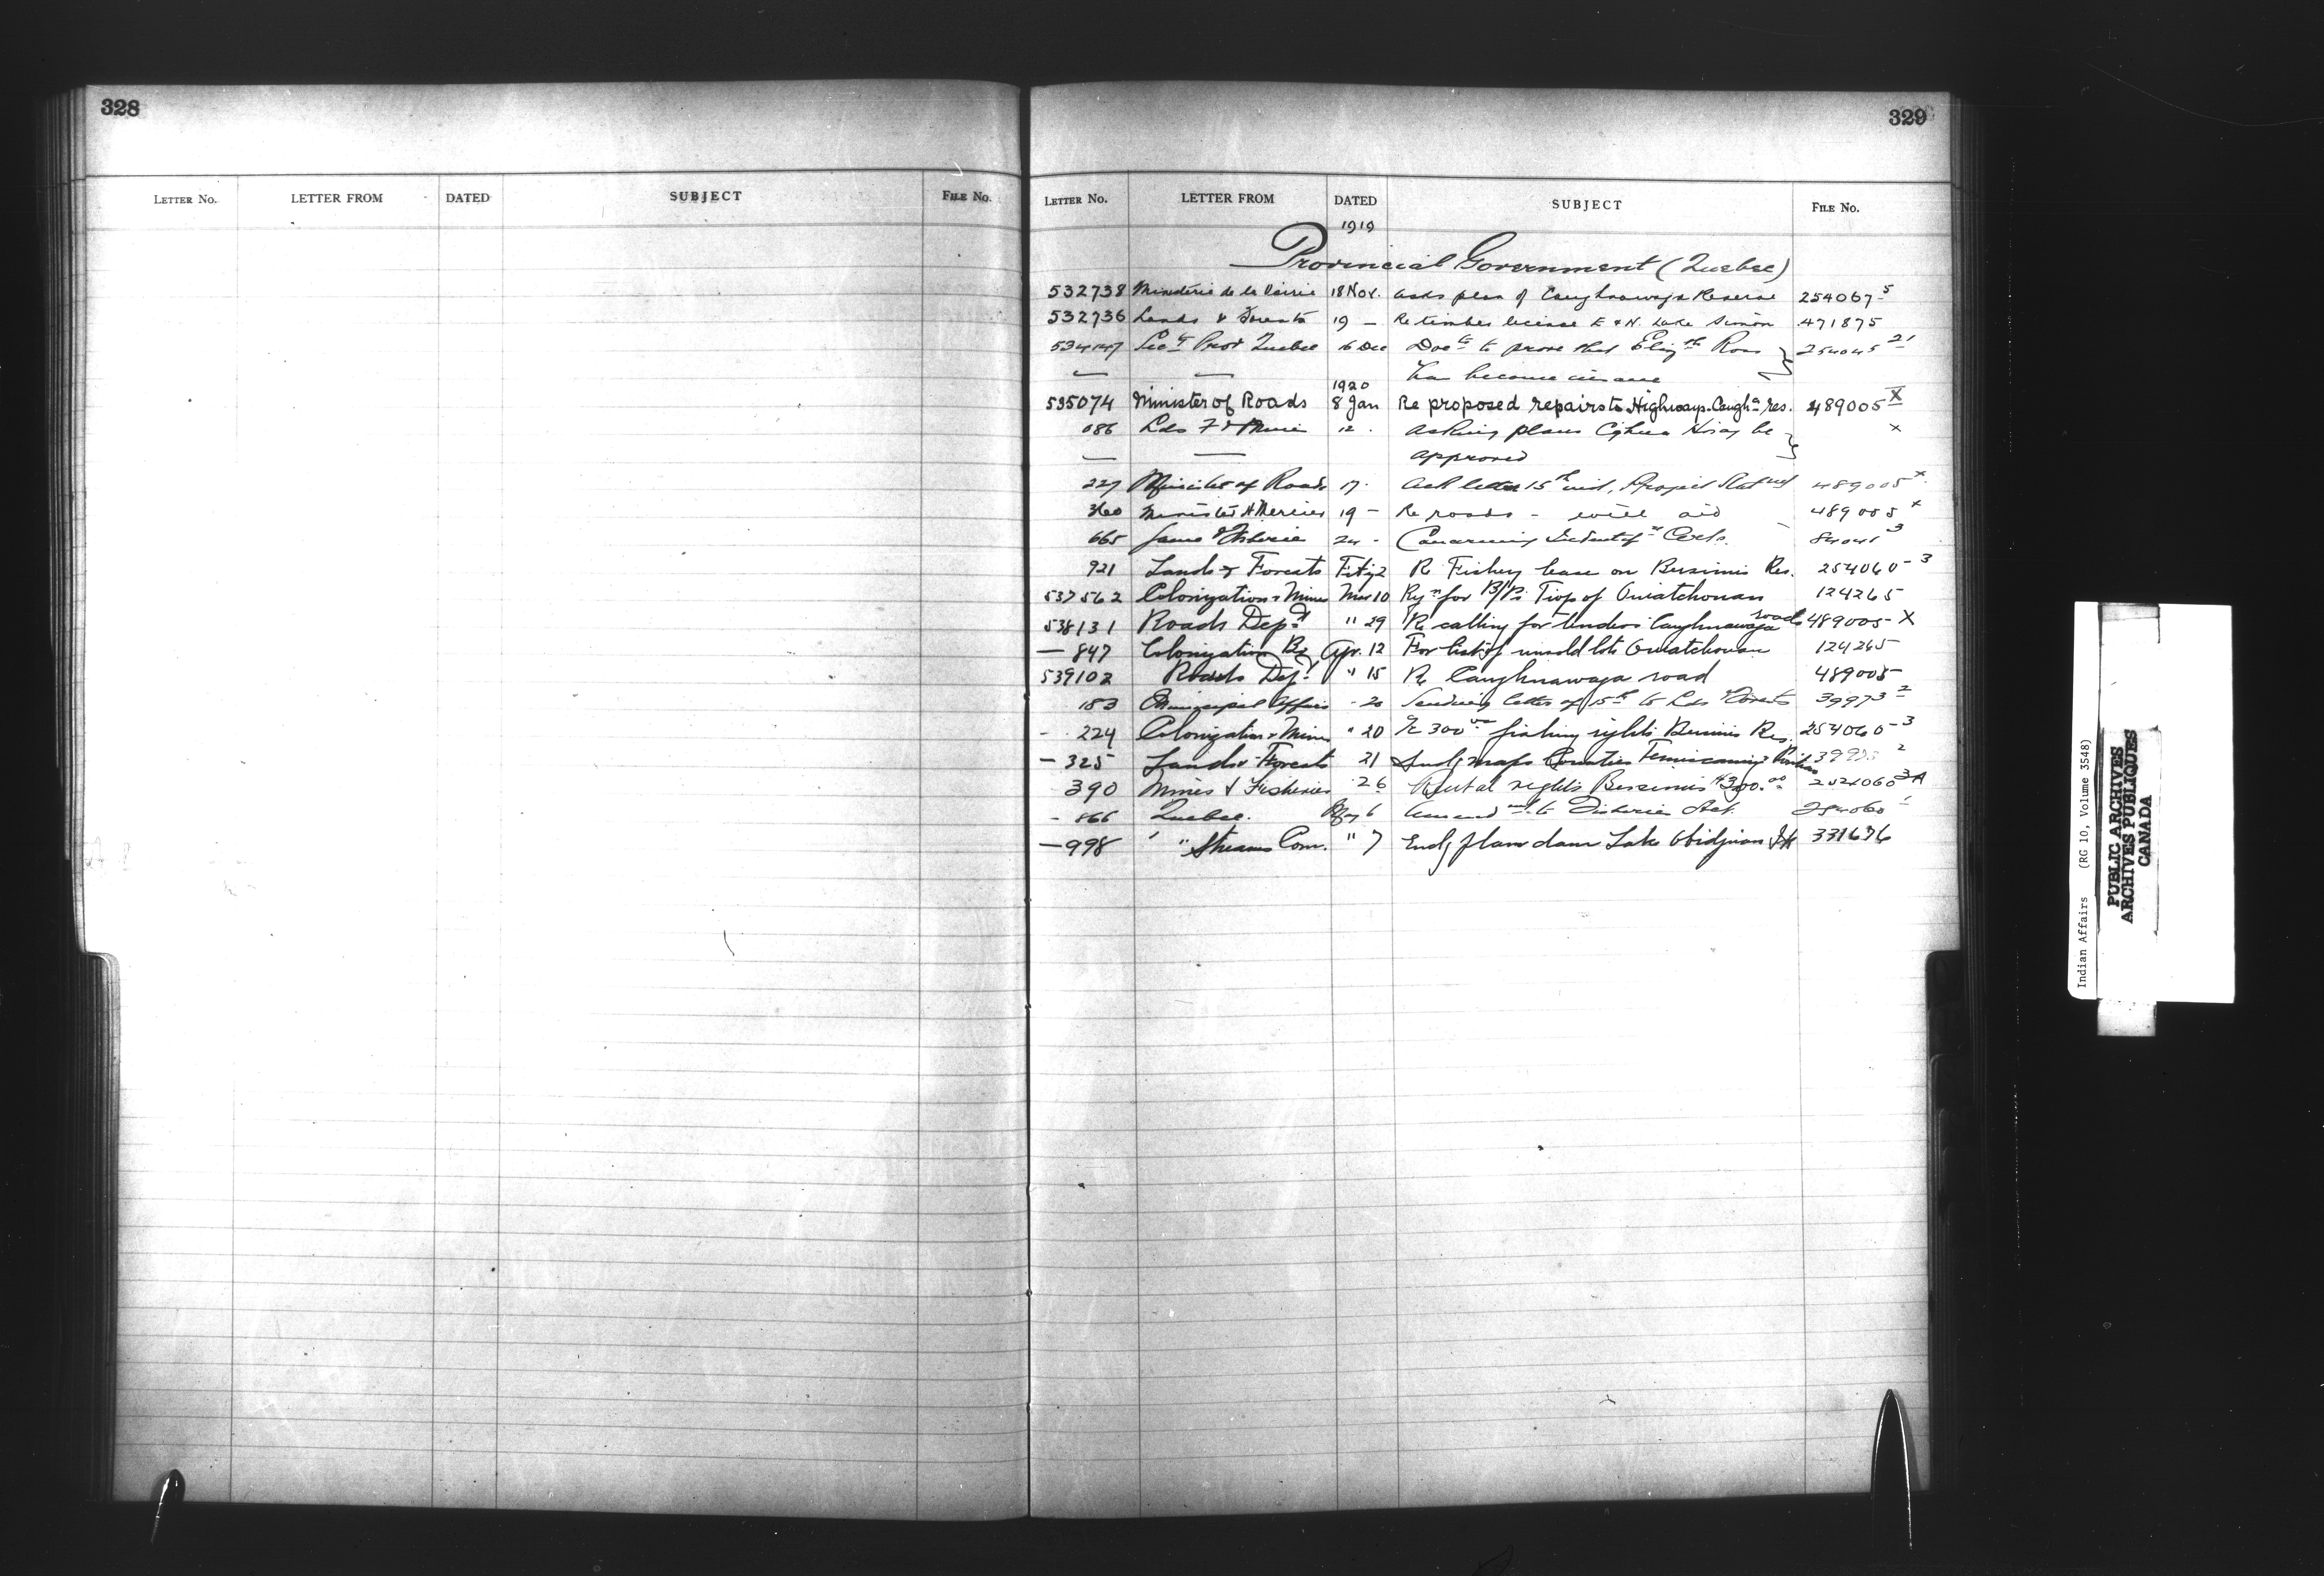 328
LETTER No. LETTER FROM DATED SUBJECT FILE No.
329
LETTER No. LETTER FROM DATED SUBJECT FILE No.
1919
Provincial Government (Quebec)
532738 Ministère de la Voirie 18 Nov. asks plan of Caughnawaga Reserve 254067-5
532736 Lands & Forests 19 — Re timber license E & N. Lake Simon 471875
534147 Secy Prov Quebec 16 Dec Docts to prove that Elizth Ross 254045 21
— — has become insane
1920
535074 Minister of Roads 8 Jan Re proposed repairs to Highways. Caugha res. 489005 X
086 Lds F & 12 . Asking plans be x
— — approved
227 Minister of Roads 17. Ack letter 15th 489005 x
360 Minister Mercier 19 — Re roads - will aid 489005 x
665 24 - Concerning Certs. 84041 3
921 Lands & Forests Feby 2 Re Fishery lease on Bersimis Res. 254060-3
537562 Colonization & Mines Mar 10 for B/Ps Twp of Ouiatchouan 124265
538131 Roads Dept " 29 Re calling for tenders Caughnawaga roads 489005-X
— 847 Colonization Apr. 12 For list of unsold lots Ouiatchouan 124265
539102 Roads Dept " 15 Re Caughnawaga road 489005
183 Municipal Affairs - 20 Sending letter of 15th to Lds Forests 39973 2
- 224 Colonization & Mines " 20 300 fishing rights Bersimis Res. 254060-3
— 325 Lands & Forests 21 maps Counties Temiscaming & Pontiac
390 Mines & Fisheries 26 Rental rights Bersimis $300.00 254060 3A
- 866 Quebec. May 6 Amendmt to Fisheries Act. 254060
— 998 ' " Streams Com. " 7 Encl plan dam Lake Obidjuan 331636
Indian Affairs (RG 10, Volume 3548)
PUBLIC ARCHIVES
ARCHIVES PUBLIQUES
CANADA